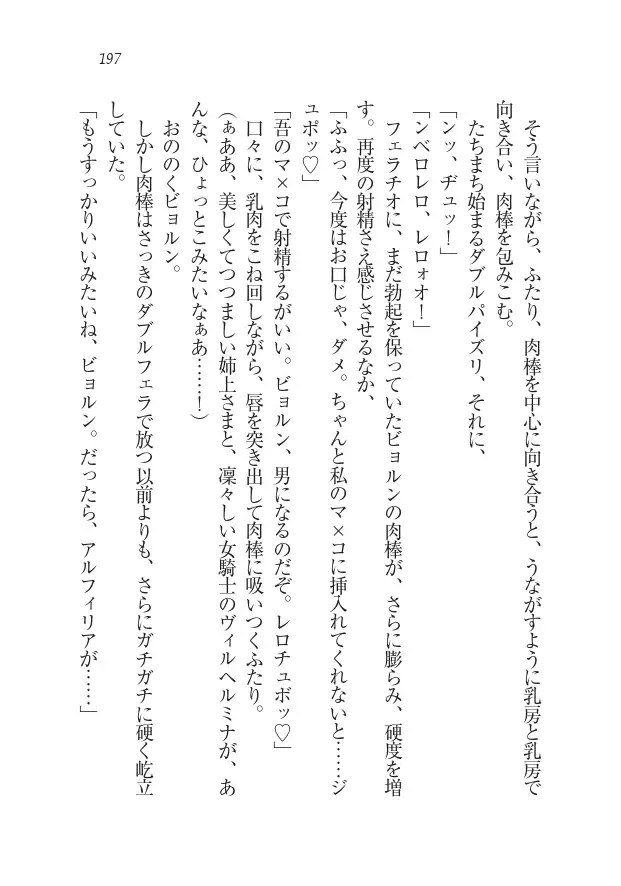 197
そう言いながら、ふたり、肉棒を中心に向き合うと、うながすように乳房と乳房で
向き合い、肉棒を包みこむ。
たちまち始まるダブルパイズリ、それに、
「ンッ、ヂュッ！」
「ンベロレロ、レロォオ！」
フェラチオに、まだ勃起を保っていたビョルンの肉棒が、さらに膨らみ、硬度を増
す。再度の射精さえ感じさせるなか、
「ふふっ、今度はお口じゃ、ダメ。ちゃんと私のマ×コに挿入れてくれないと……ジ
ュポッ♡」
「吾のマ×コで射精するがいい。ビョルン、男になるのだぞ。レロチュボッ♡」
口々に、乳肉をこね回しながら、唇を突き出して肉棒に吸いつくふたり。
（ぁああ、美しくてつつましい姉上さまと、凜々しい女騎士のヴィルヘルミナが、あ
んな、ひょっとこみたいなぁあ……！）
おののくビョルン。
しかし肉棒はさっきのダブルフェラで放つ以前よりも、さらにガチガチに硬く屹立
していた。
「もうすっかりいいみたいね、ビョルン。だったら、アルフィリアが……」